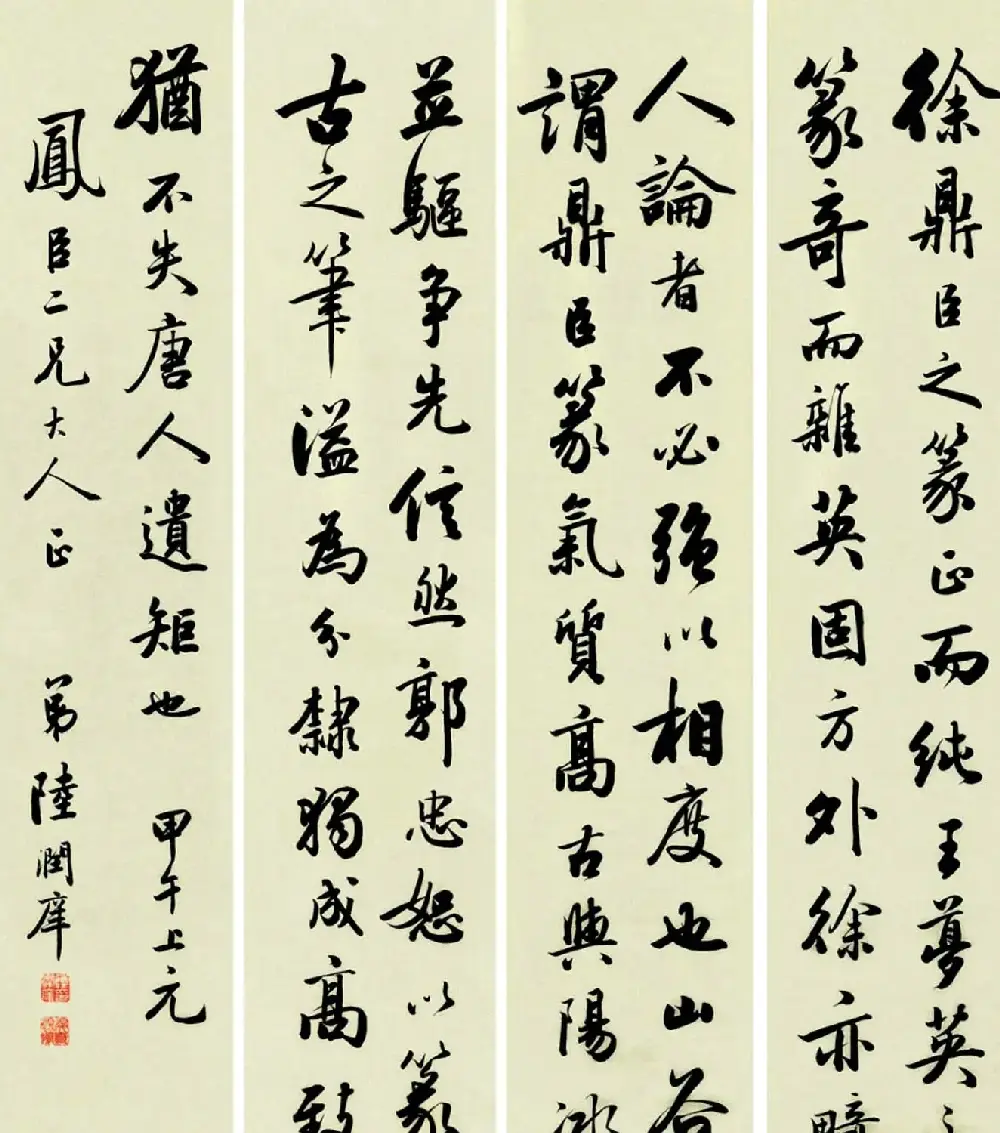 徐鼎臣之篆正而純王夢英之
篆奇而雜英固方外徐亦畸
人論者不必強以相度也山谷
謂鼎臣篆氣質高古與陽冰
並驅爭先信然郭忠恕以篆
古之筆溢為分隸獨成高致
猶不失唐人遺矩也 甲午上元
鳳臣二兄大人正 弟陸潤庠